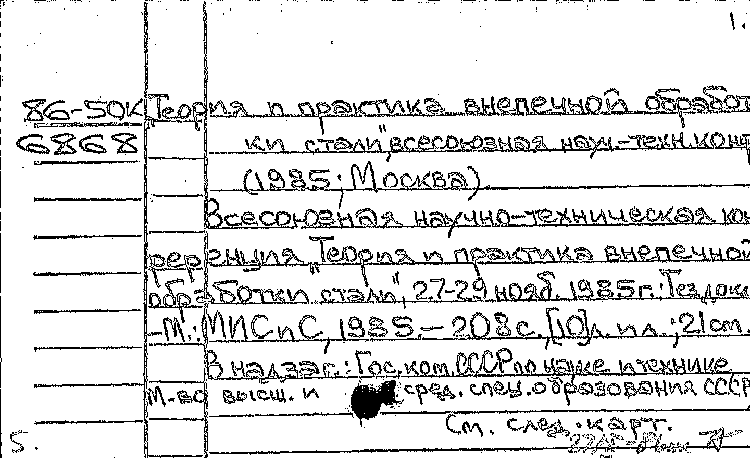 1.
86-50К "Теория и практика внепечной обработ
6868 ки стали", всесоюзная науч.-техн. конф
(1985; Москва)
Всесоюзная научно-техническая кон
ференция "Теория и практика внепечной
обработки стали", 27-29 нояб. 1985 г.: Тез. докл
-М.: МИСиС, 1985. - 208 с., [10] л. ил.; 21 см.
В надзаг.: Гос. ком. СССР по науке и технике,
М-во высш. и сред. спец. образования СССР
См. след. карт.
5.